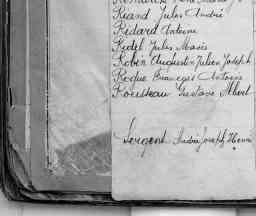 Riand Jules André
Ridard Antoine
Ridel Jules Marie
Robin Augustin Julien Joseph
Rodue François Antoine
Rousseau Gustave Albert
Sergent André Joseph Henri